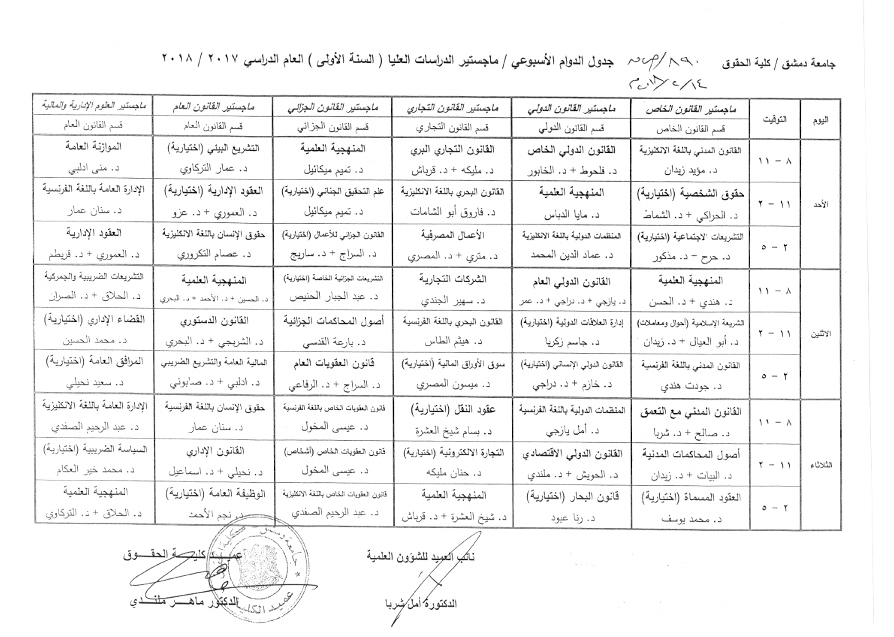 جامعة دمشق / كلية الحقوق
جدول الدوام الأسبوعي / ماجستير الدراسات العليا ( السنة الأولى ) العام الدراسي ٢٠١٧ / ٢٠١٨
اليوم التوقيت ماجستير القانون الخاص ماجستير القانون الدولي ماجستير القانون التجاري ماجستير القانون الجزائي ماجستير القانون العام ماجستير العلوم الإدارية والمالية
قسم القانون الخاص قسم القانون الدولي قسم القانون التجاري قسم القانون الجزائي قسم القانون العام قسم القانون العام
الأحد
٨ - ١١ القانون المدني باللغة الانكليزية القانون الدولي الخاص القانون التجاري البري المنهجية العلمية التشريع البيئي (اختيارية) الموازنة العامة
د. مؤيد زيدان د. فلحوط + د. الخابور د. مليكه + د. قرباش د. تميم ميكائيل د. عمار التركاوي د. منى ادلبي
١١ - ٢ حقوق الشخصية (اختيارية) المنهجية العلمية القانون البحري باللغة الانكليزية علم التحقيق الجنائي (اختيارية) العقود الإدارية (اختيارية) الإدارة العامة باللغة الفرنسية
د. الحراكي + د. الشماط د. مايا الدباس د. فاروق أبو الشامات د. تميم ميكائيل د. العموري + د. عزو د. سنان عمار
٢ - ٥ التشريعات الاجتماعية (اختيارية) المنظمات الدولية باللغة الانكليزية الأعمال المصرفية القانون الجزائي للأعمال (اختيارية) حقوق الإنسان باللغة الانكليزية العقود الإدارية
د. حرح – د. مذكور د. عماد الدين المحمد د. متري + د. المصري د. السراج + د. ساريج د. عصام التكروري د. العموري + د. قريطم
الاثنين
٨ - ١١ المنهجية العلمية القانون الدولي العام الشركات التجارية التشريعات الجزائية الخاصة (اختيارية) المنهجية العلمية التشريعات الضريبية والجمركية
د. هندي + د. الحسن د. يازجي + د. دراجي + د. عمر د. سهير الجندي د. عبد الجبار الحنيص د. الحسين + د. الأحمد + د. البحري د. الحلاق + د. الصرار
١١ - ٢ الشريعة الإسلامية (أحوال ومعاملات) إدارة العلاقات الدولية (اختيارية) القانون البحري باللغة الفرنسية أصول المحاكمات الجزائية القانون الدستوري القضاء الإداري (اختيارية)
د. أبو العيال + د. زيدان د. جاسم زكريا د. هيثم الطاس د. بارعة القدسي د. الشربجي + د. البحري د. محمد الحسين
٢ - ٥ القانون المدني باللغة الفرنسية القانون الدولي الإنساني (اختيارية) سوق الأوراق المالية (اختيارية) قانون العقوبات العام المالية العامة والتشريع الضريبي المرافق العامة (اختيارية)
د. جودت هندي د. خازم + د. دراجي د. ميسون المصري د. السراج + د. الرفاعي د. ادلبي + د. صابوني د. سعيد نحيلي
الثلاثاء
٨ - ١١ القانون المدني مع التعمق المنظمات الدولية باللغة الفرنسية عقود النقل (اختيارية) قانون العقوبات الخاص باللغة الفرنسية حقوق الإنسان باللغة الفرنسية الإدارة العامة باللغة الانكليزية
د. صالح + د. شربا د. أمل يازجي د. بسام شيخ العشرة د. عيسى المخول د. سنان عمار د. عبد الرحيم الصفدي
١١ - ٢ أصول المحاكمات المدنية القانون الدولي الاقتصادي التجارة الالكترونية (اختيارية) قانون العقوبات الخاص (أشخاص) القانون الإداري السياسة الضريبية (اختيارية)
د. البيات + د. زيدان د. الحويش + د. ملندي د. حنان مليكه د. عيسى المخول د. نحيلي + د. اسماعيل د. محمد خير العكام
٢ - ٥ العقود المسماة (اختيارية) قانون البحار (اختيارية) المنهجية العلمية قانون العقوبات الخاص باللغة الانكليزية الوظيفة العامة (اختيارية) المنهجية العلمية
د. محمد يوسف د. رنا عبود د. شيخ العشرة + د. قرباش د. عبد الرحيم الصفدي د. نجم الأحمد د. الحلاق + د. التركاوي
نائب العميد للشؤون العلمية
عميد كلية الحقوق
الدكتورة أمل شربا
الدكتور ماهر ملندي